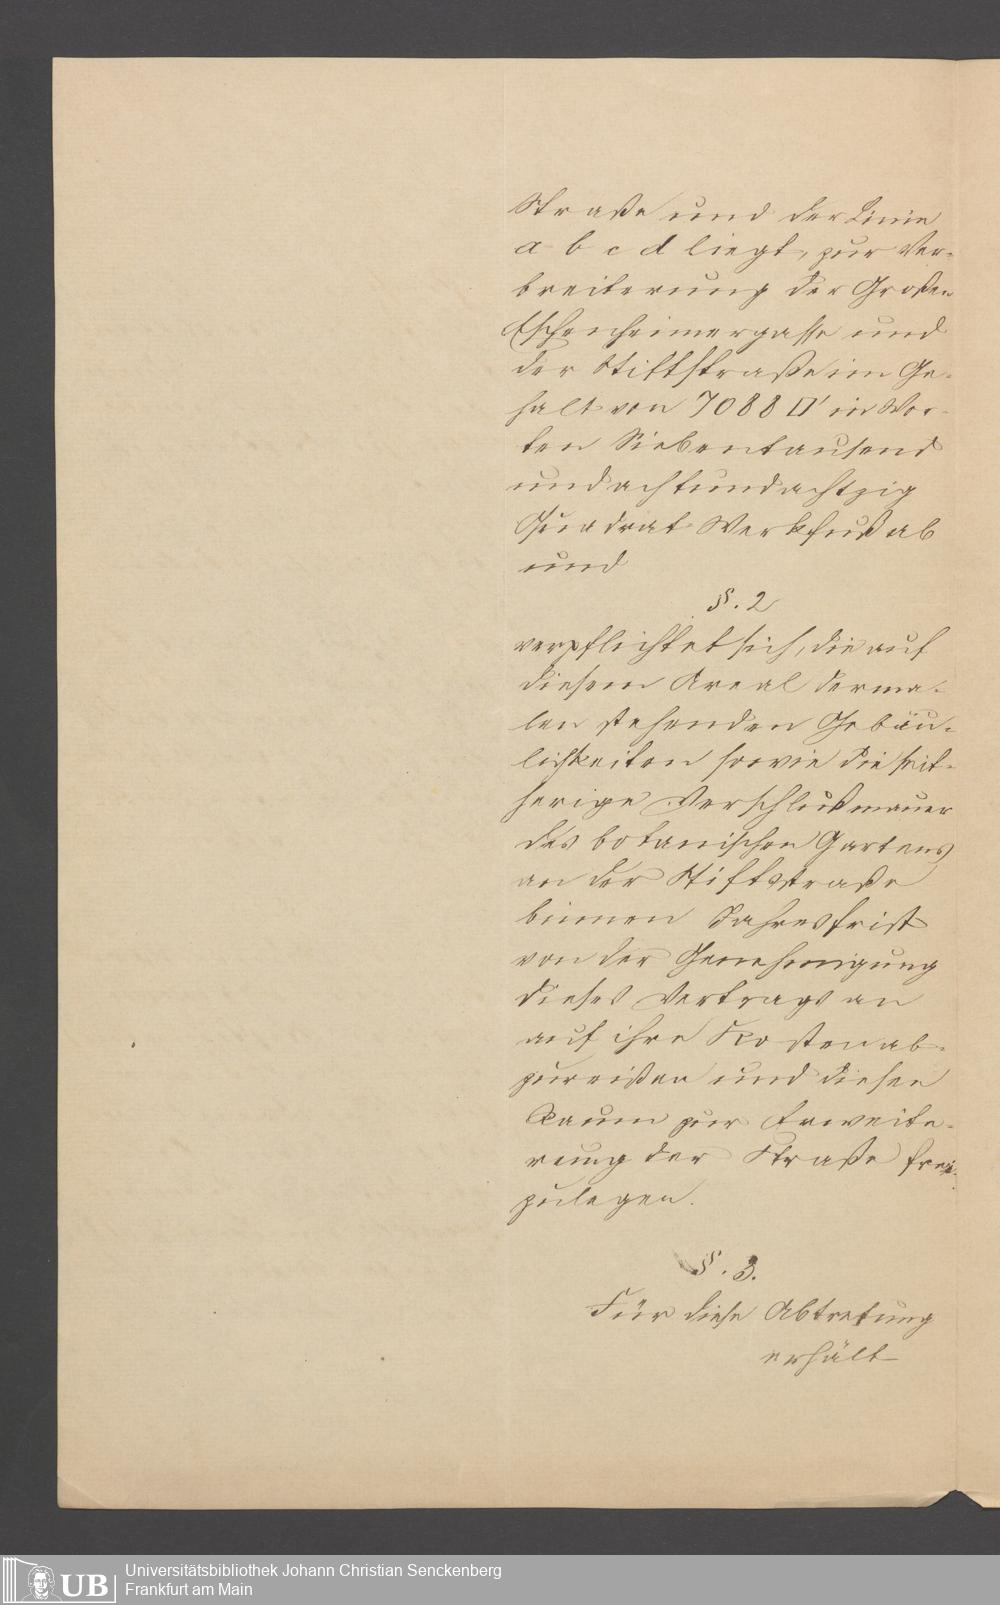 Straße und der Linie
a b c d liegt, zur Ver-
breiterung der Großen
Eschenheimergasse und
der Stiftstraße im Ge-
halt von 7088 □' in Wor-
ten Siebentausend
und achtundachtzig
Quadrat Werkfuß ab
und
§. 2
verpflichtet sich, die auf
diesem Areal derma-
len stehenden Gebäu-
lichkeiten sowie die seit-
herige Verschlußmauer
des botanischen Gartens
an der Stiftsstraße
binnen Jahresfrist
von der Genehmigung
dieses Vertrags an
auf ihre Kosten ab-
zureißen und diesen
Raum zur Erweite-
rung der Straße frei-
zulegen.
§. 3.
Für diese Abtretung
erhält
UB Universitätsbibliothek Johann Christian Senckenberg
Frankfurt am Main